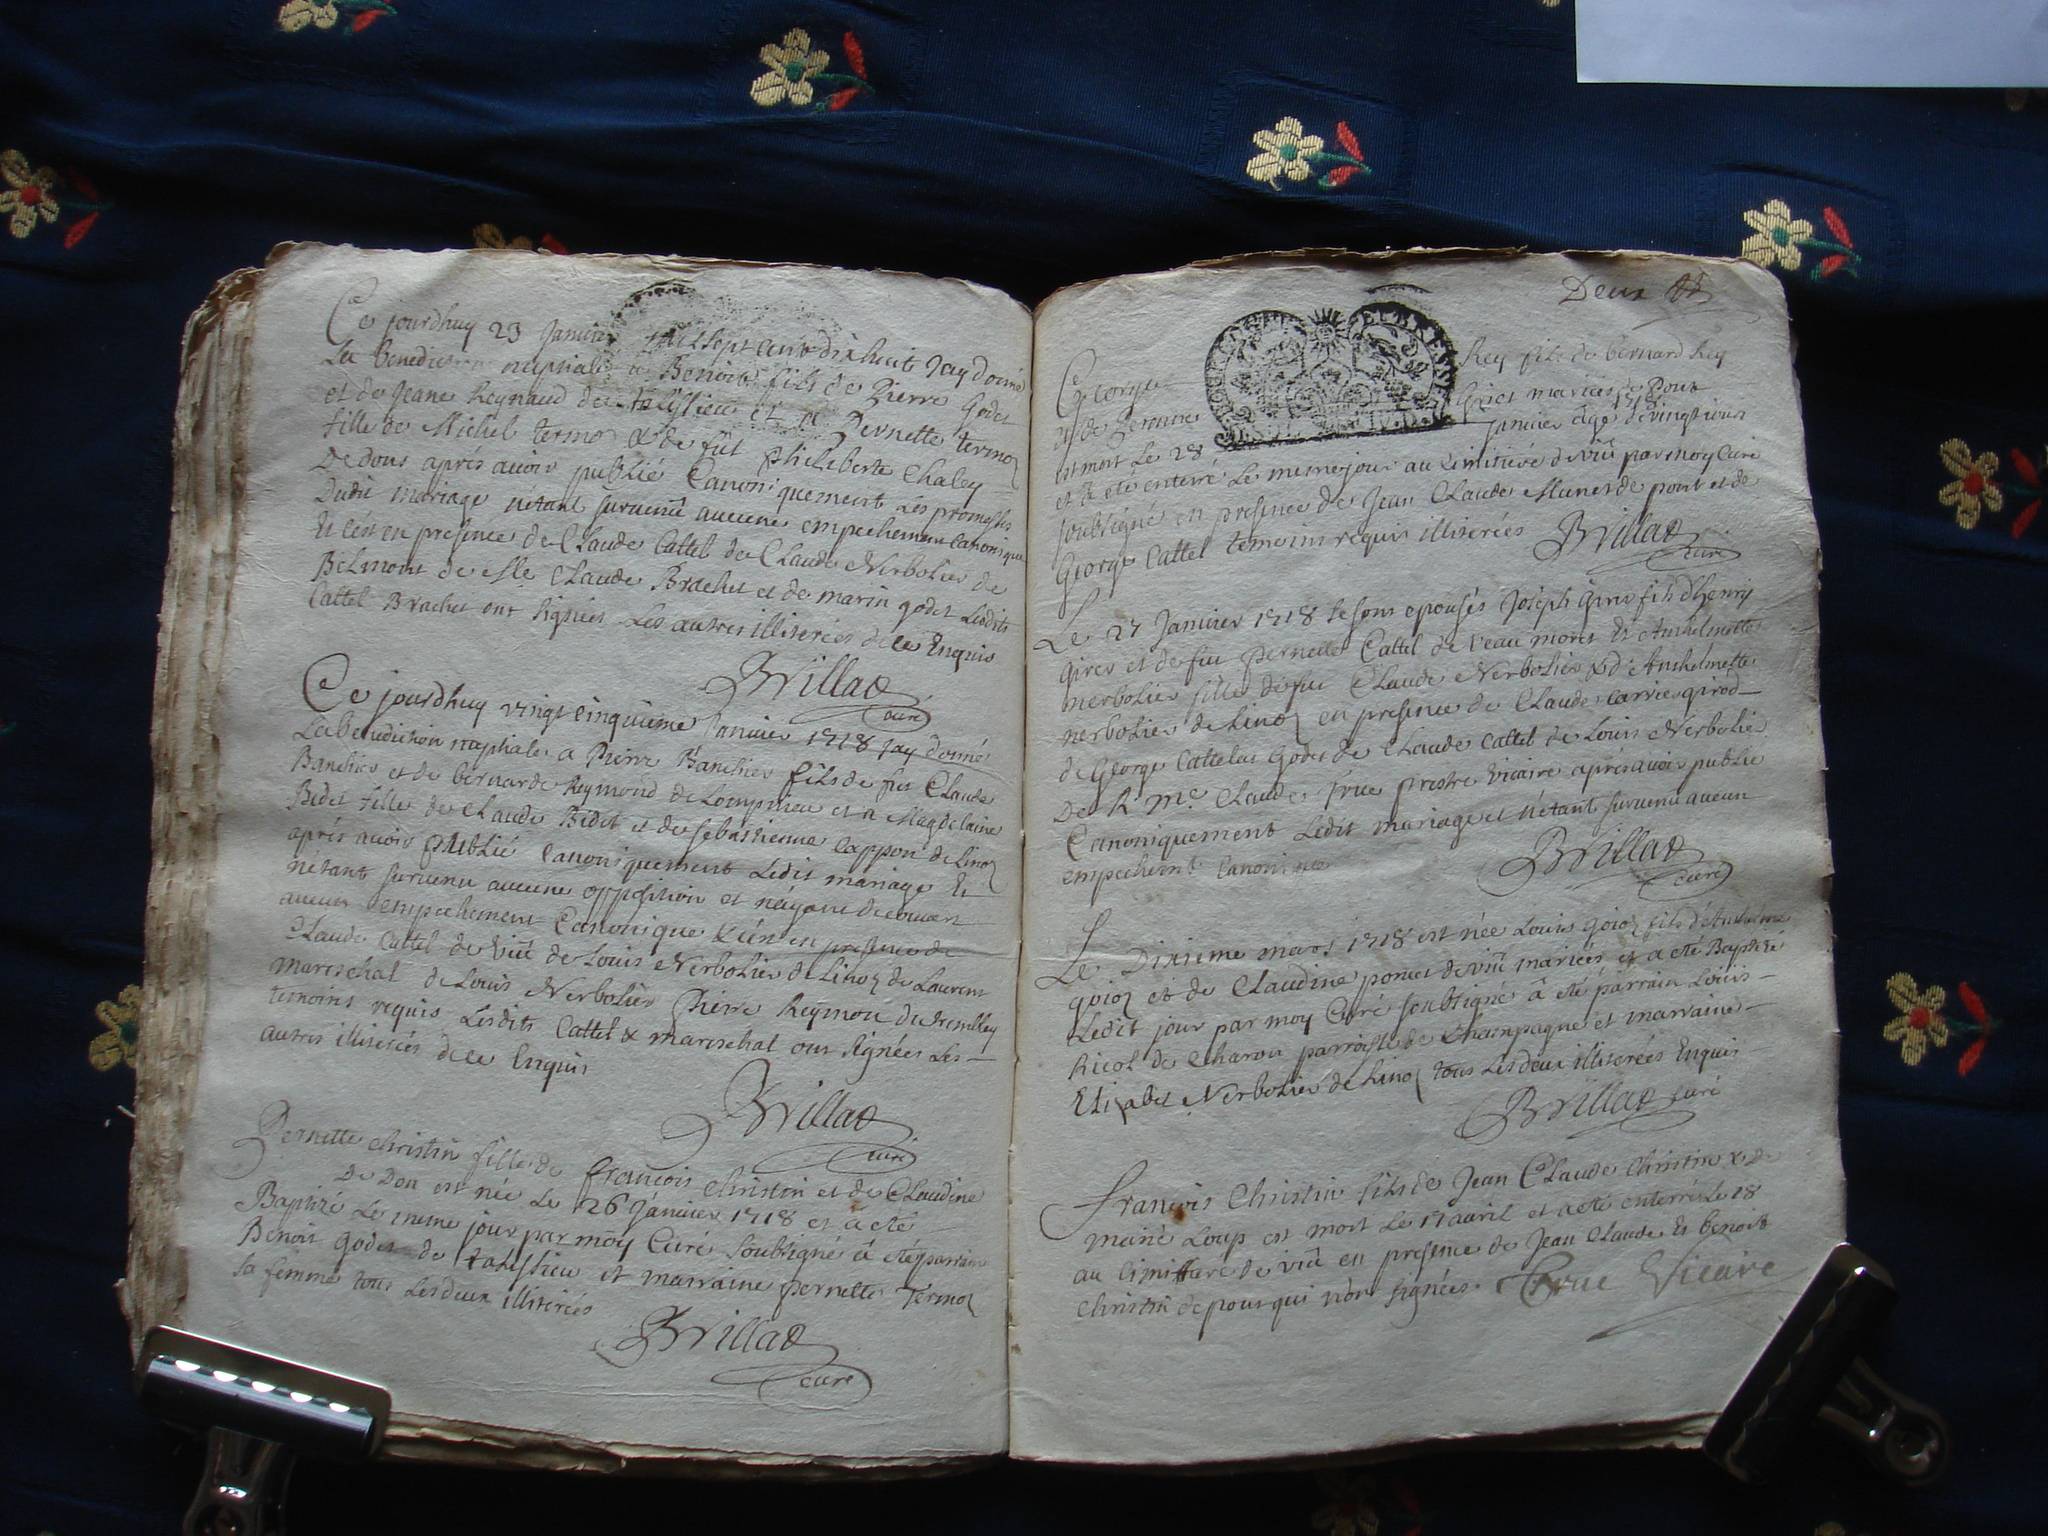 Ce jourdhuy 23 Janvier mil sept cent dix huit Jay donné
La benediction nuptiale a Benoit fils de Pierre Godet
et de Jeane Reynaud de talissieu et a Pernette termoz
fille de Michel termoz & de füe philiberte Chaley
De dons aprés avoir publié Canoniquement Les promesses
Dudit mariage n'étant survenû aucune empechement canonique
Et c'est en presence de Claude Cattel de Claude Nerbolier de
Belmont de Claude Brachet et de marin godet Lesdits
Cattel Brachet ont signées Les autres illiterées de ce Enquis
Brillat
curé
Ce jourdhuy vingt cinquieme Janvier 1718 Jay donné
La benediction nuptiale a Pierre Banchier fils de fus Claude
Banchier et de bernarde Reymond de Lompnieu et a Magdelaine
Bidet fille de Claude Bidet et de sebastienne Cappon de Linoz
aprés avoir Publié Canoniquement Ledit mariage Et
n'étant survenu aucune opposition et n'ayant decouvert
aucun empechement Canonique & c'en en presence de
Claude Cattel de viû de Louis Nerbolier de Linoz de Laurent
mareschal de Louis Nerbolier Pierre Reymon du tremblay
temoins requis Lesdits Cattel & mareschal ont signées Les
autres illiterées de ce Enquis
Brillat
curé
Pernette Christin fille de françois Christin et de Claudine
De Don est née Le 26 Janvier 1718 et a eté
Baptizé Le meme jour par moy Curé soubsigné â eté parrain
Benoit godet de talissieu et marraine pernette Termoz
sa femme tous Les deux illiterées
Brillat
curé
Deux
George Rey fils de bernard Rey
et de Jemme Giret mariés de Pont
est mort Le 28 Janvier 1718 âgé de vingt jours
et â eté enterré Le meme jour au Cimitiére de viû par moy Curé
soubsigné en presence de Jean Claude Munet de pont et de
George Cattel temoins requis illiterées Brillat
curé
Le 27 Janvier 1718 se sont epousés Joseph Girer fils d'henry
Girer et de fue pernette Cattel de veau mont Et Anthelmette
nerbolier fille de fue Claude Nerbolier & d'Anthelmette
nerbolier de Linoz en presence de Claude Carrier girod
de George Cattel Godet de Claude Cattel de Louis Nerbolier
De R. Me. Claude Prestre Vicaire aprés avoir publié
Canoniquement Ledit mariage et n'étant survenu aucun
empechemt Canonique
Brillat
curé
Le Dixieme mars 1718 est née Louis Goioz fils d'Anthelme
goioz et de Claudine poncet de viû mariées et a eté Baptizé
Ledit jour par moy Curé soubsigné â eté parrain Louis
Ricol de Charon parroisse de Champagne et marraine
Elizabet Nerbolier de Linoz tous Les deux illiterées Enquis
Brillat curé
François Christin fils de Jean Claude Christin & de
marie Loup est mort Le 17 avril et a eté enterré Le 18
au Cimittiere de viû en presence de Jean Claude Et benoist
Christin de pont qui n'ont signées. Vicaire